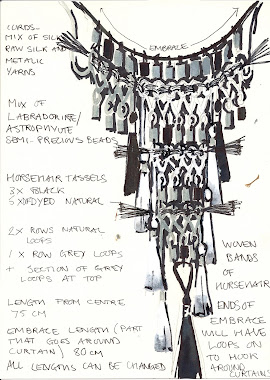 CORDS -
MIX OF SILK
RAW SILK AND
METALIC
YARNS
EMBRACE
MIX OF
LABRADORITE/
ASTROPHYLLITE
SEMI-PRECIOUS BEADS
HORSEHAIR TASSELS
3X BLACK
NATURAL
2X ROWS NATURAL
LOOPS
1X ROW GREY LOOPS
+ SECTION OF GREY
LOOPS AT TOP
LENGTH FROM CENTRE
75 CM
EMBRACE LENGTH (PART
THAT GOES AROUND
CURTAIN) 80 CM
ALL LENGTHS CAN BE CHANGED
WOVEN
BANDS
OF
HORSEHAIR
ENDS OF
EMBRACE
WILL HAVE
LOOPS ON
TO HOOK
AROUND
CURTAINS